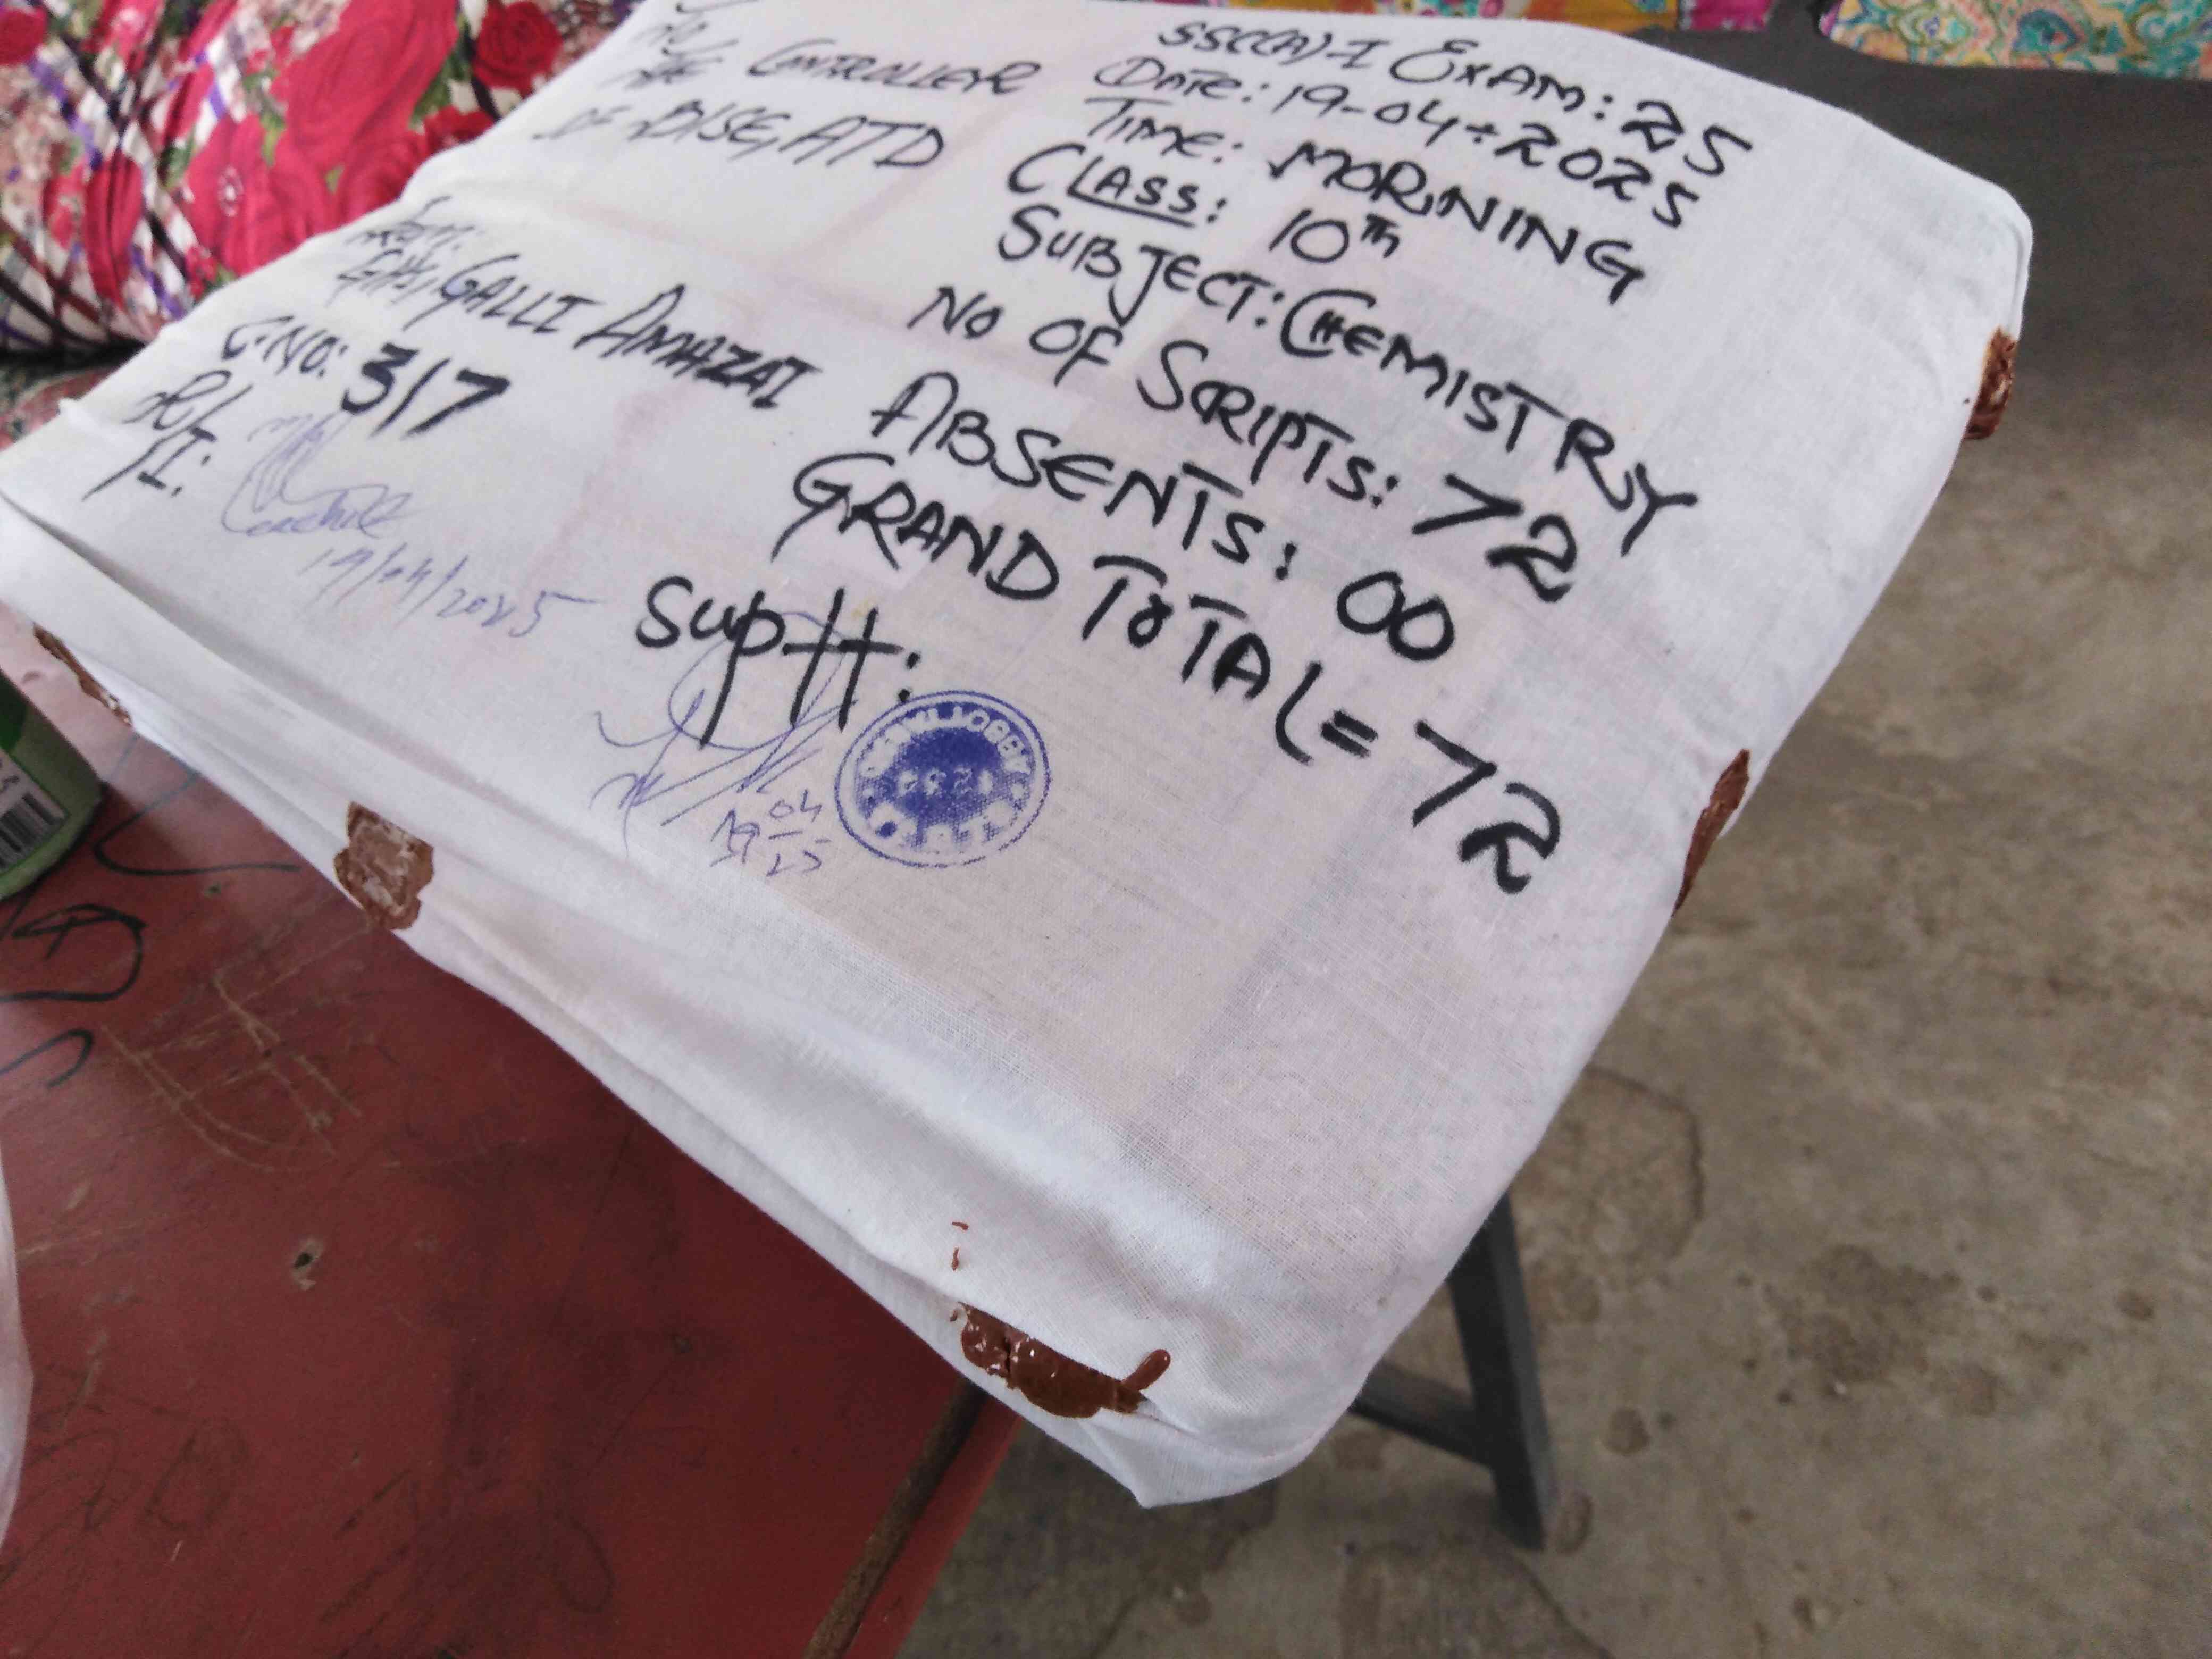 TO/
THE CONTROLLER
OF BISE, ATD
From:
GHS, GALLI AMAZAI
C.NO: 317
D/I:
19/04/2025
SSC(A)-I EXAM: 25
DATE: 19-04-2025
TIME: MORNING
CLASS: 10th
SUBJECT: CHEMISTRY
NO OF SCRIPTS: 72
ABSENTS: 00
GRAND TOTAL = 72
Suptt:
19-04-25